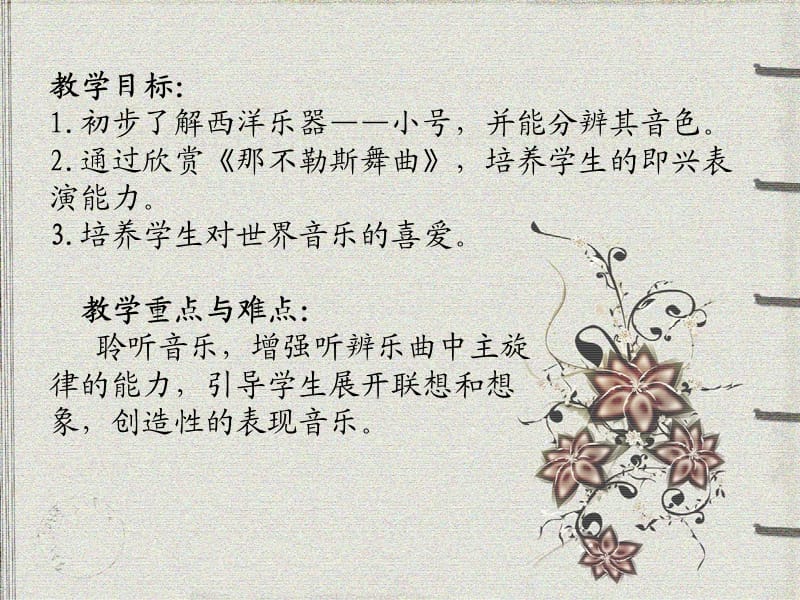 教学目标：
1.初步了解西洋乐器——小号，并能分辨其音色。
2.通过欣赏《那不勒斯舞曲》，培养学生的即兴表
演能力。
3.培养学生对世界音乐的喜爱。
教学重点与难点：
聆听音乐，增强听辨乐曲中主旋
律的能力，引导学生展开联想和想
象，创造性的表现音乐。